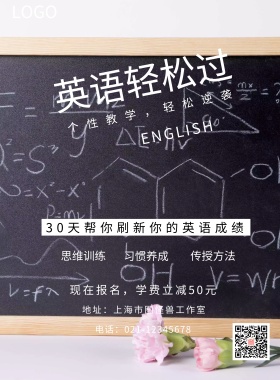 LOGO
英语轻松过
个性教学，轻松逆袭
ENGLISH
30天帮你刷新你的英语成绩
思维训练 习惯养成 传授方法
现在报名，学费立减50元
地址：上海市图怪兽工作室
电话：021-12345678